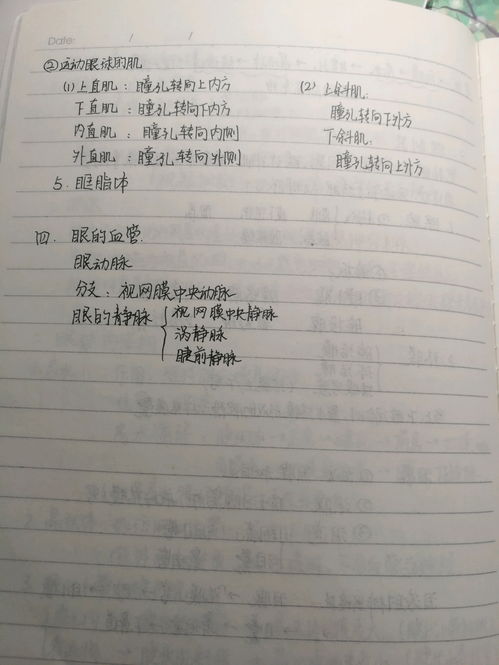 Date: / /
②运动眼球的肌
(1)上直肌：瞳孔转向上内方
下直肌：瞳孔转向下内方
内直肌：瞳孔转向内侧
外直肌：瞳孔转向外侧
(2)上斜肌：
瞳孔转向下外方
下斜肌：
瞳孔转向上外方
5.眶脂体
四.眼的血管.
眼动脉
分支：视网膜中央动脉
眼的静脉{视网膜中央静脉
涡静脉
睫前静脉